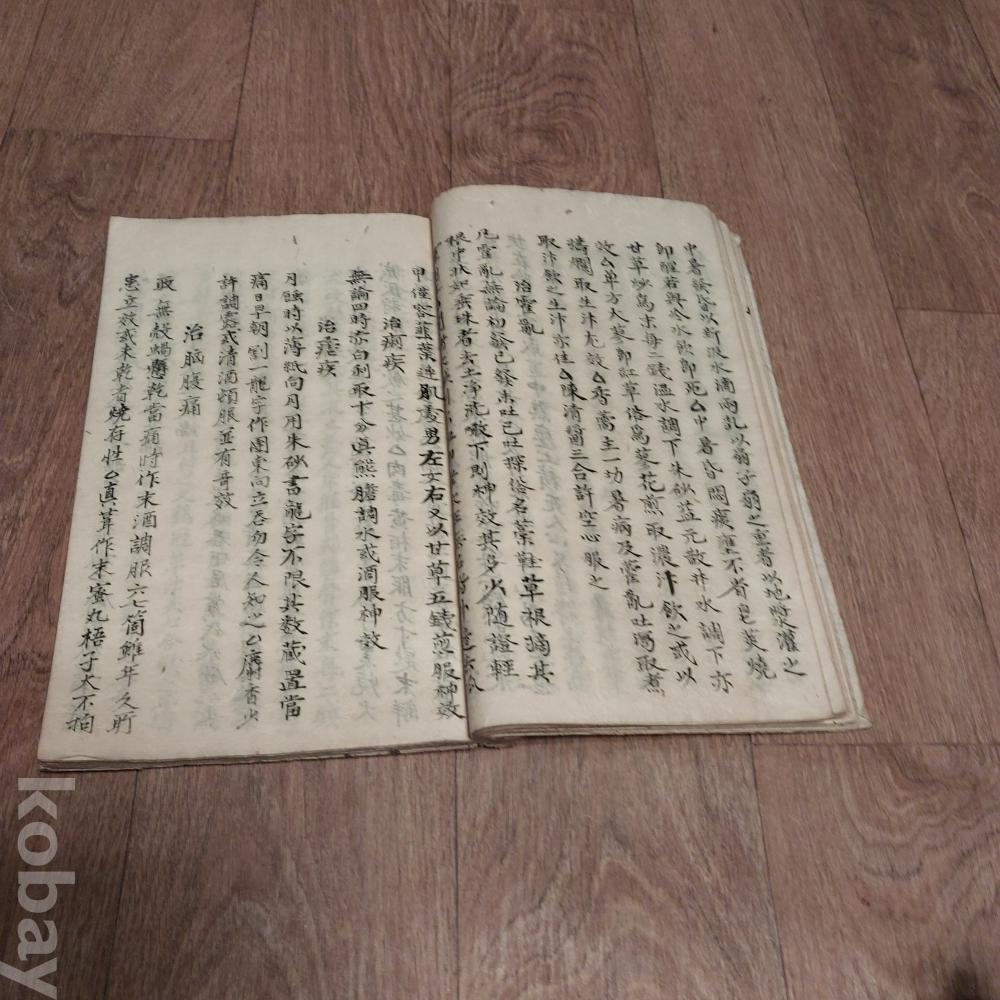 中暑發昏以新汲水滴兩乳以扇子扇之重者以地漿灌之
卽醒若與冷水飮卽死△中暑昏悶 不省 皂莢燒
甘草炒爲末每二錢溫水調下朱砂益元散井水調下亦
效△單方大蓼卽紅草俗爲蓼花煎取濃汁飮之或以
香薷主一切暑病及霍亂吐瀉取煮
擣爛取生汁尤效△陳淸醬三合許空心服之
取汁飮之生汁亦佳△
治霍亂
凡霍亂無論初發已發未吐已吐採俗名葉 草根摘其
根中狀如 珠者去土淨洗嚼下則神效其多少隨證輕
甲僅容 葉連肌處男左女右又以甘草五錢煎服神效
治痢疾
無論四時赤白痢取十分眞熊膽調水或酒服神效
治瘧疾
月蝕時以薄紙向月用朱砂書龍字不限其數藏置當
痛日早朝割一龍字作圑東向立呑勿令人知之△麝香少
許調露或淸酒頓服並有奇效
治腦腹痛
取無殼蝸 乾當痛時作末酒調服六七箇雖年久
患立效或未乾者燒存性△眞茸作末蜜丸梧子大不拘
kobay